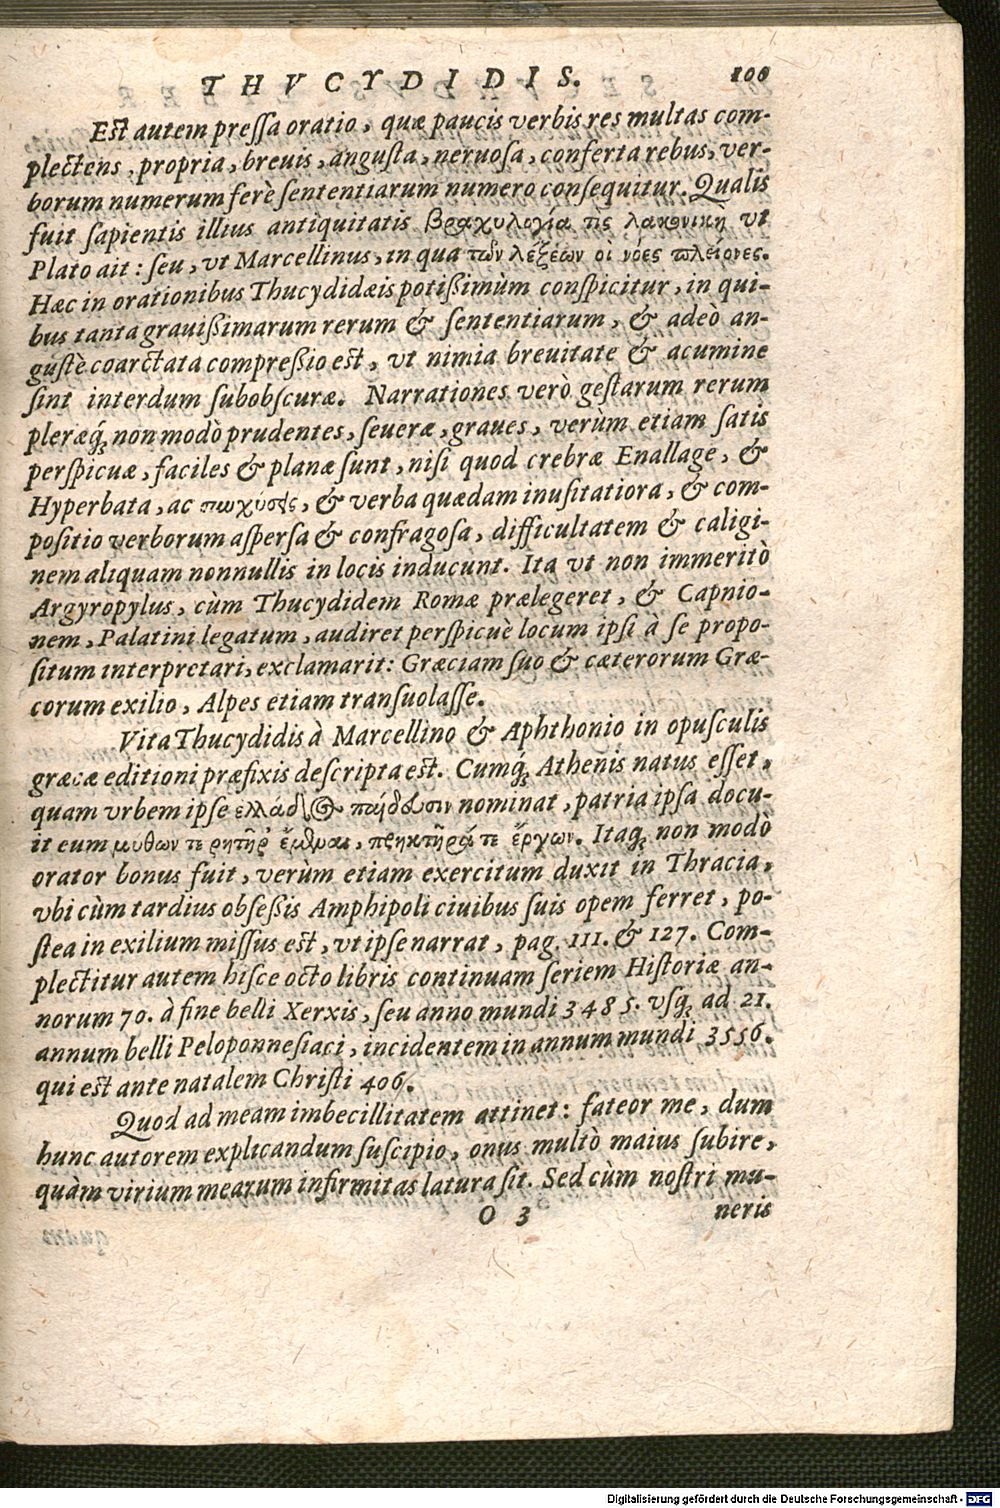 THVCYDIDIS. 100
Est autem preſſa oratio, quæ paucis verbis res multas com-
plectens, propria, breuis, anguſta, neruoſa, conferta rebus, ver-
borum numerum ferè ſententiarum numero conſequitur. Qualis
fuit ſapientis illius antiquitatis βραχυλογία τὶς λακονικὴ vt
Plato ait: ſeu, vt Marcellinus, in qua τῶν λέξεων οἱ νόες πλείονες.
Hæc in orationibus Thucydidæis potißimùm conſpicitur, in qui-
bus tanta grauißimarum rerum & ſententiarum, & adeò an-
guſtè coarctata compreßio est, vt nimia breuitate & acumine
ſint interdum ſubobſcuræ. Narrationes verò geſtarum rerum
pleræq́; non modò prudentes, ſeueræ, graues, verùm etiam ſatis
perſpicuæ, faciles & planæ ſunt, niſi quod crebræ Enallage, &
Hyperbata, ac & verba quædam inuſitatiora, & com-
poſitio verborum aſperſa & confragoſa, difficultatem & caligi-
nem aliquam nonnullis in locis inducunt. Ita vt non immeritò
Argyropylus, cùm Thucydidem Romæ prælegeret, & Capnio-
nem, Palatini legatum, audiret perſpicuè locum ipſi à ſe propo-
ſitum interpretari, exclamarit: Græciam ſuo & cæterorum Græ-
corum exilio, Alpes etiam tranſuolaſſe.
Vita Thucydidis à Marcellino & Aphthonio in opuſculis
græcæ editioni præfixis deſcripta est. Cumq́; Athenis natus eſſet,
quam vrbem ipſe ἑλλάδος παίδευσιν nominat, patria ipſa docu-
it eum μυθων τε ρητῆρ᾽ ἔμϟμαι, πρηκτῆρά τε ἔργων. Itaq; non modò
orator bonus fuit, verùm etiam exercitum duxit in Thracia,
vbi cùm tardius obſeßis Amphipoli ciuibus ſuis opem ferret, po-
ſtea in exilium miſſus est, vt ipſe narrat, pag. 111. & 127. Com-
plectitur autem hiſce octo libris continuam ſeriem Hiſtoriæ an-
norum 70. à fine belli Xerxis, ſeu anno mundi 3485. vſq; ad 21.
annum belli Peloponneſiaci, incidentem in annum mundi 3556.
qui est ante natalem Chriſti 406.
Quod ad meam imbecillitatem attinet: fateor me, dum
hunc autorem explicandum ſuſcipio, onus multò maius ſubire,
quàm virium mearum infirmitas latura ſit. Sed cùm noſtri mu-
O 3 neris
Digitalisierung gefördert durch die Deutsche Forschungsgemeinschaft - DFG